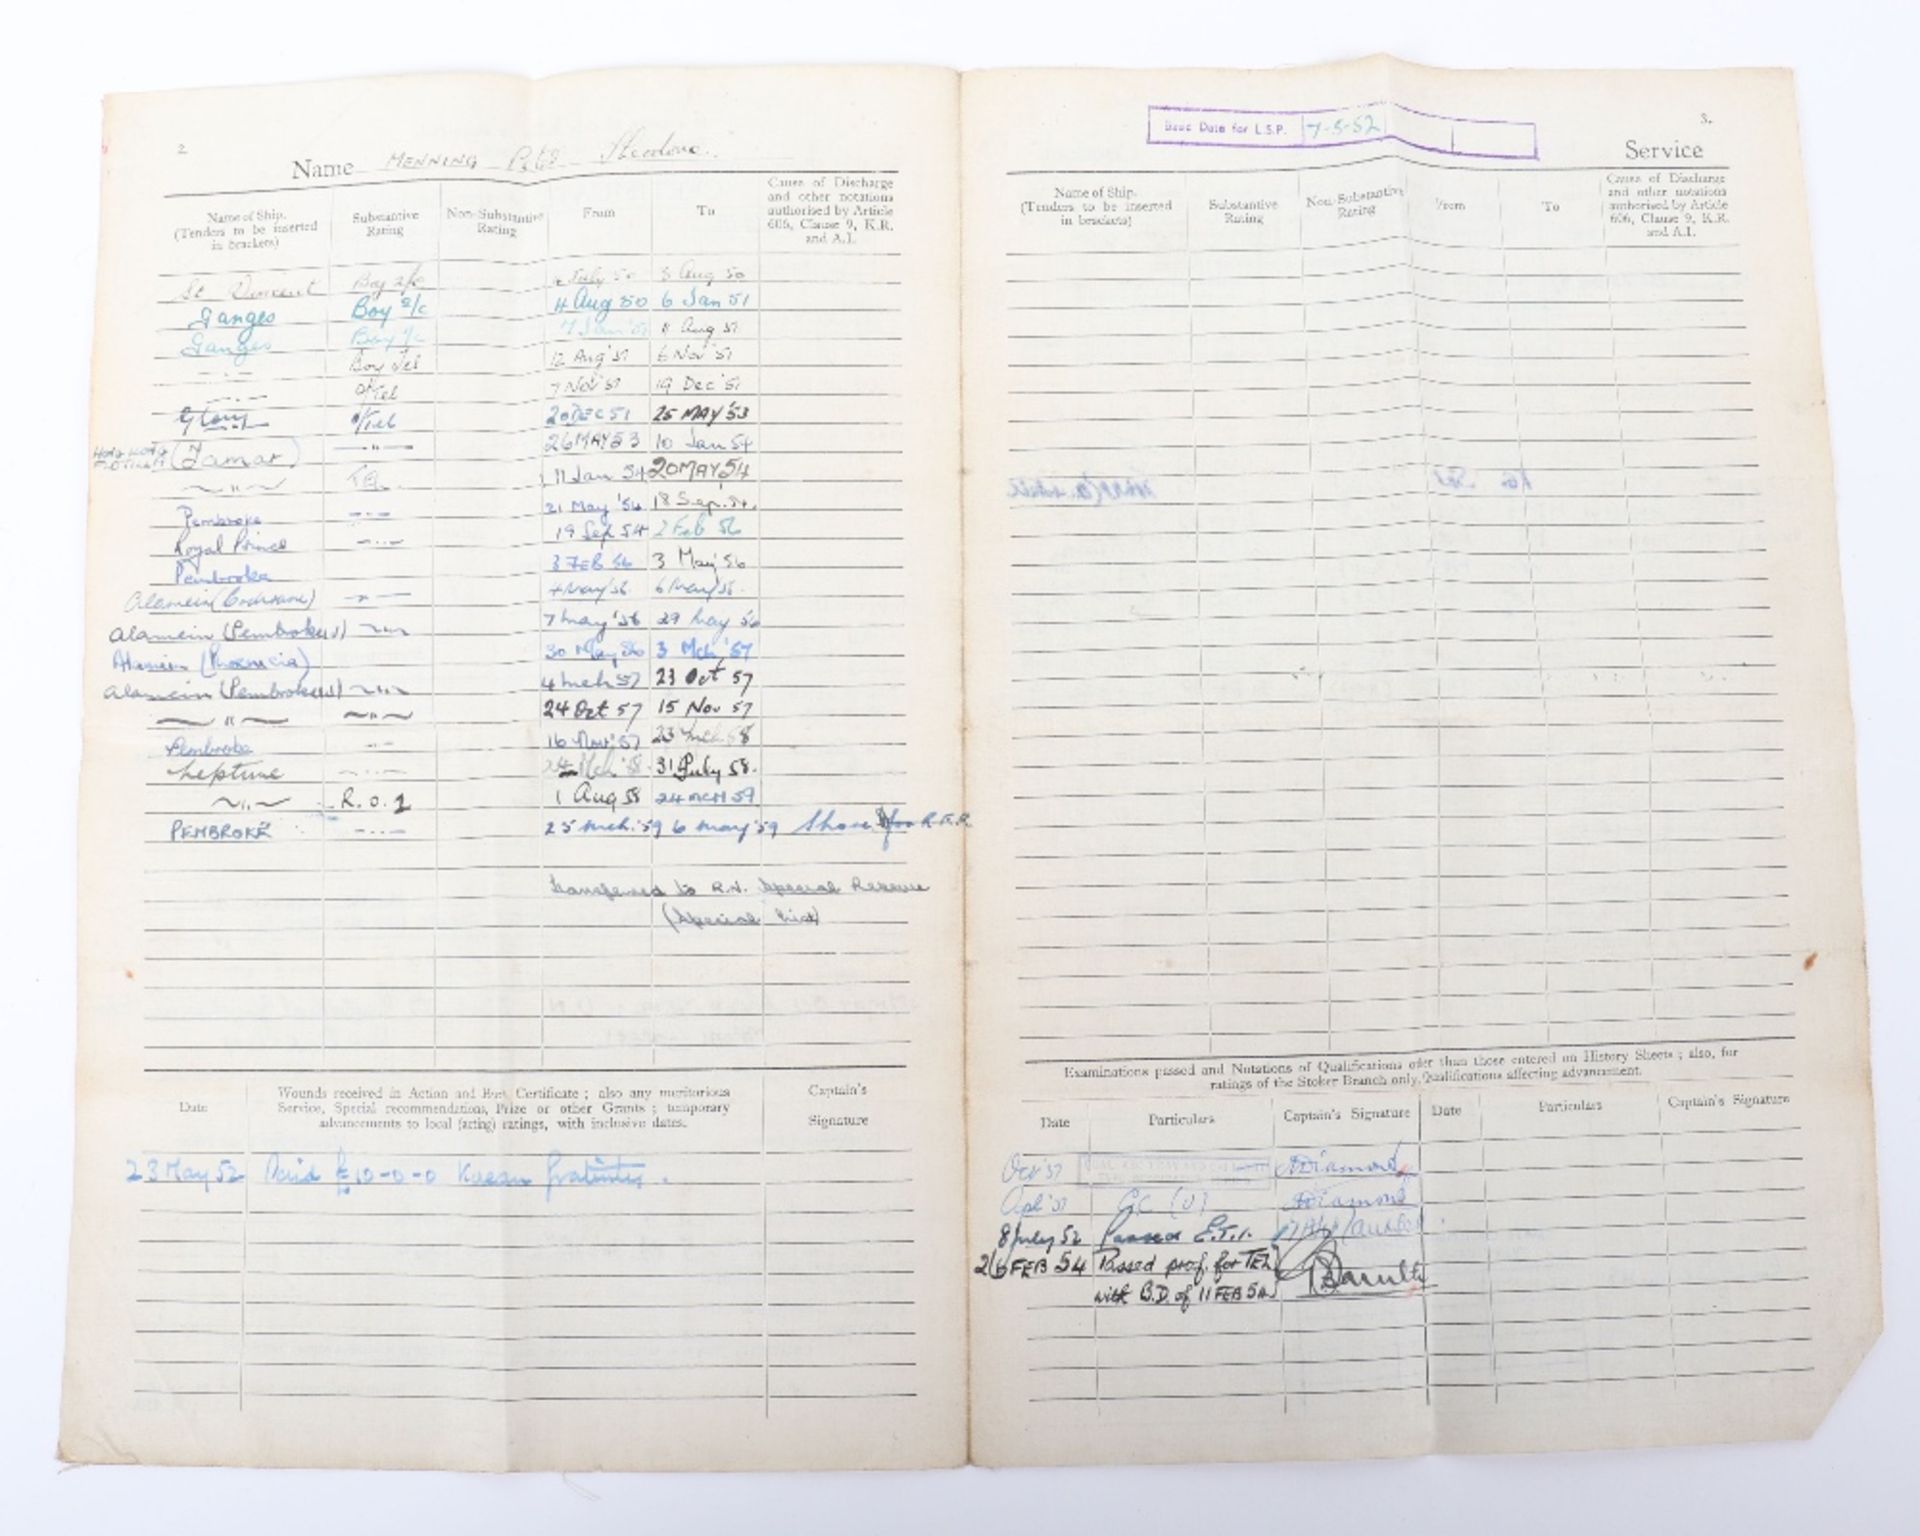 2.
Name MENNING
Name of Ship. (Tenders to be inserted in brackets) Substantive Rating Non-Substantive Rating From To Cause of Discharge and other notations authorised by Article 606, Clause 9, K.R. and A.I.
St Vincent Boy 2/c July 50 3 Aug 50
Ganges Boy 2/c 4 Aug 50 6 Jan 51
Ganges Boy 1/c 7 Jan '51 11 Aug 51
—"— Boy Tel 12 Aug '51 6 Nov '51
—"— O/Tel 7 Nov '51 19 Dec '51
Glory O/Tel 20 DEC 51 25 MAY '53
HONG KONG FLOTILLA (Tamar) —"— 26 MAY 53 10 Jan 54
—"— TEL. 11 Jan 54 20 MAY 54
Pembroke —"— 21 May '54 18 Sep. 54.
Royal Prince —"— 19 Sep 54 2 Feb 56
Pembroke 3 FEB 56 3 May '56
Alamein (Cochrane) —"— 4 May '56 6 May '56.
Alamein (Pembroke —"— 7 May '56 29 May 56
Alamein (Phoenicia) 30 May 56 3 Mch '57
Alamein (Pembroke —"— 4 Mch 57 23 Oct 57
—"— —"— 24 Oct 57 15 Nov 57
Pembroke —"— 16 Nov '57 23 Mch 58
Neptune —"— 24 Mch '58 31 July 58.
—"— R.O.2 1 Aug 58 24 MCH 59
PEMBROKE —"— 25 Mch. '59 6 May '59 Shore
Transferred to R.N. Special Reserve
(Special List)
Date Wounds received in Action and Hurt Certificate ; also any meritorious Service, Special recommendations, Prize or other Grants ; temporary advancements to local (acting) ratings, with inclusive dates. Captain's Signature
23 May 52 Paid £10-0-0 Korean Gratuity.
Basic Date for L.S.P. 7-5-52
3.
Service
Name of Ship. (Tenders to be inserted in brackets) Substantive Rating Non-Substantive Rating From To Cause of Discharge and other notations authorised by Article 606, Clause 9, K.R. and A.I.
Examinations passed and Notations of Qualifications other than those entered on History Sheets ; also, for
ratings of the Stoker Branch only, Qualifications affecting advancement.
Date Particulars Captain's Signature Date Particulars Captain's Signature
Oct '51 Diamond
Diamond
8 July 52 Passed E.T.1.
26 FEB 54 Passed prof. for TEL
with B.D. of 11 FEB 54